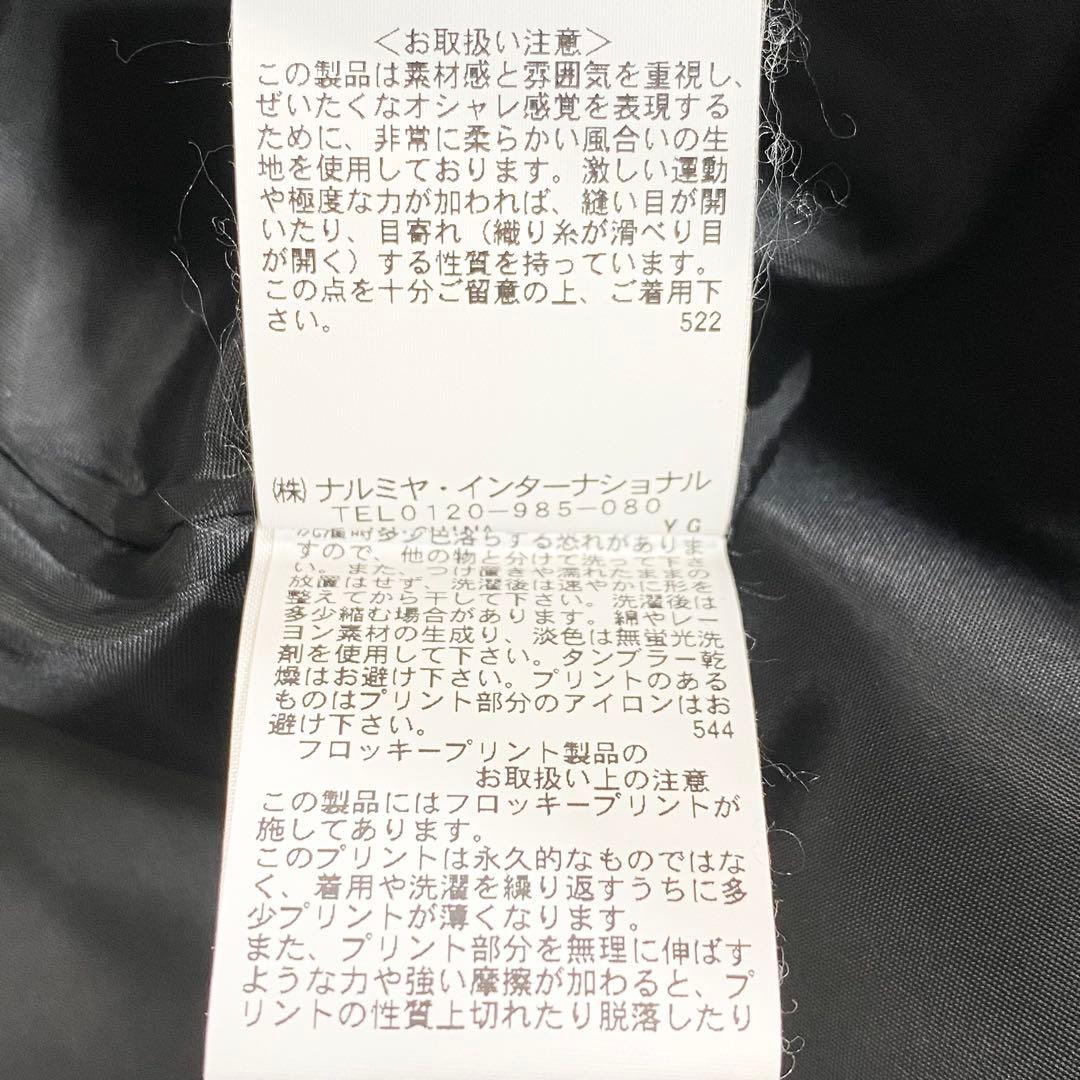 ＜お取扱い注意＞
この製品は素材感と雰囲気を重視し、
ぜいたくなオシャレ感覚を表現する
ために、非常に柔らかい風合いの生
地を使用しております。激しい運動
や極度な力が加われば、縫い目が開
いたり、目寄れ（織り糸が滑べり目
が開く）する性質を持っています。
この点を十分ご留意の上、ご着用下
さい。 522
㈱ナルミヤ・インターナショナル
TEL0120-985-080
YG
時多少色落ちする恐れがありま
すので、他の物と分けて洗って下さ
い。また、つけ置きや濡れたままの
放置はせず、洗濯後は速やかに形を
整えてから干して下さい。洗濯後は
多少縮む場合があります。綿やレー
ヨン素材の生成り、淡色は無蛍光洗
剤を使用して下さい。タンブラー乾
燥はお避け下さい。プリントのある
ものはプリント部分のアイロンはお
避け下さい。 544
フロッキープリント製品の
お取扱い上の注意
この製品にはフロッキープリントが
施してあります。
このプリントは永久的なものではな
く、着用や洗濯を繰り返すうちに多
少プリントが薄くなります。
また、プリント部分を無理に伸ばす
ような力や強い摩擦が加わると、プ
リントの性質上切れたり脱落したり